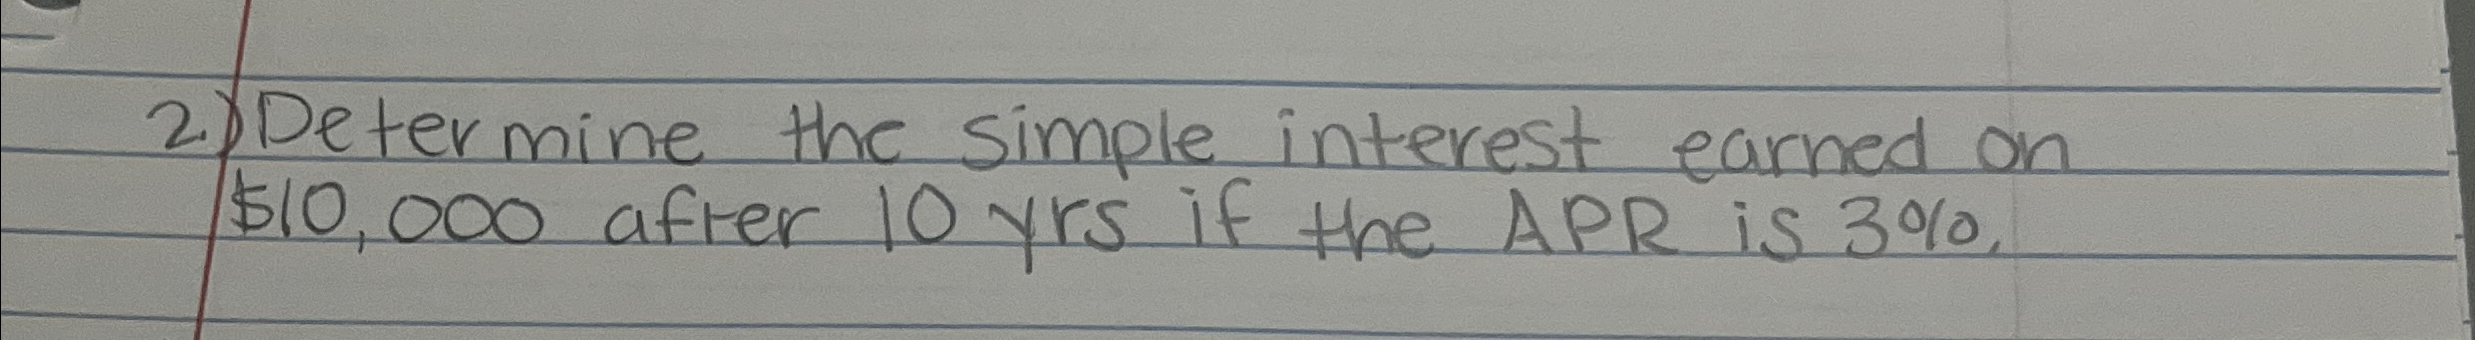 2.) Determine the simple interest earned on
$10,000 after 10 yrs if the APR is 3%.